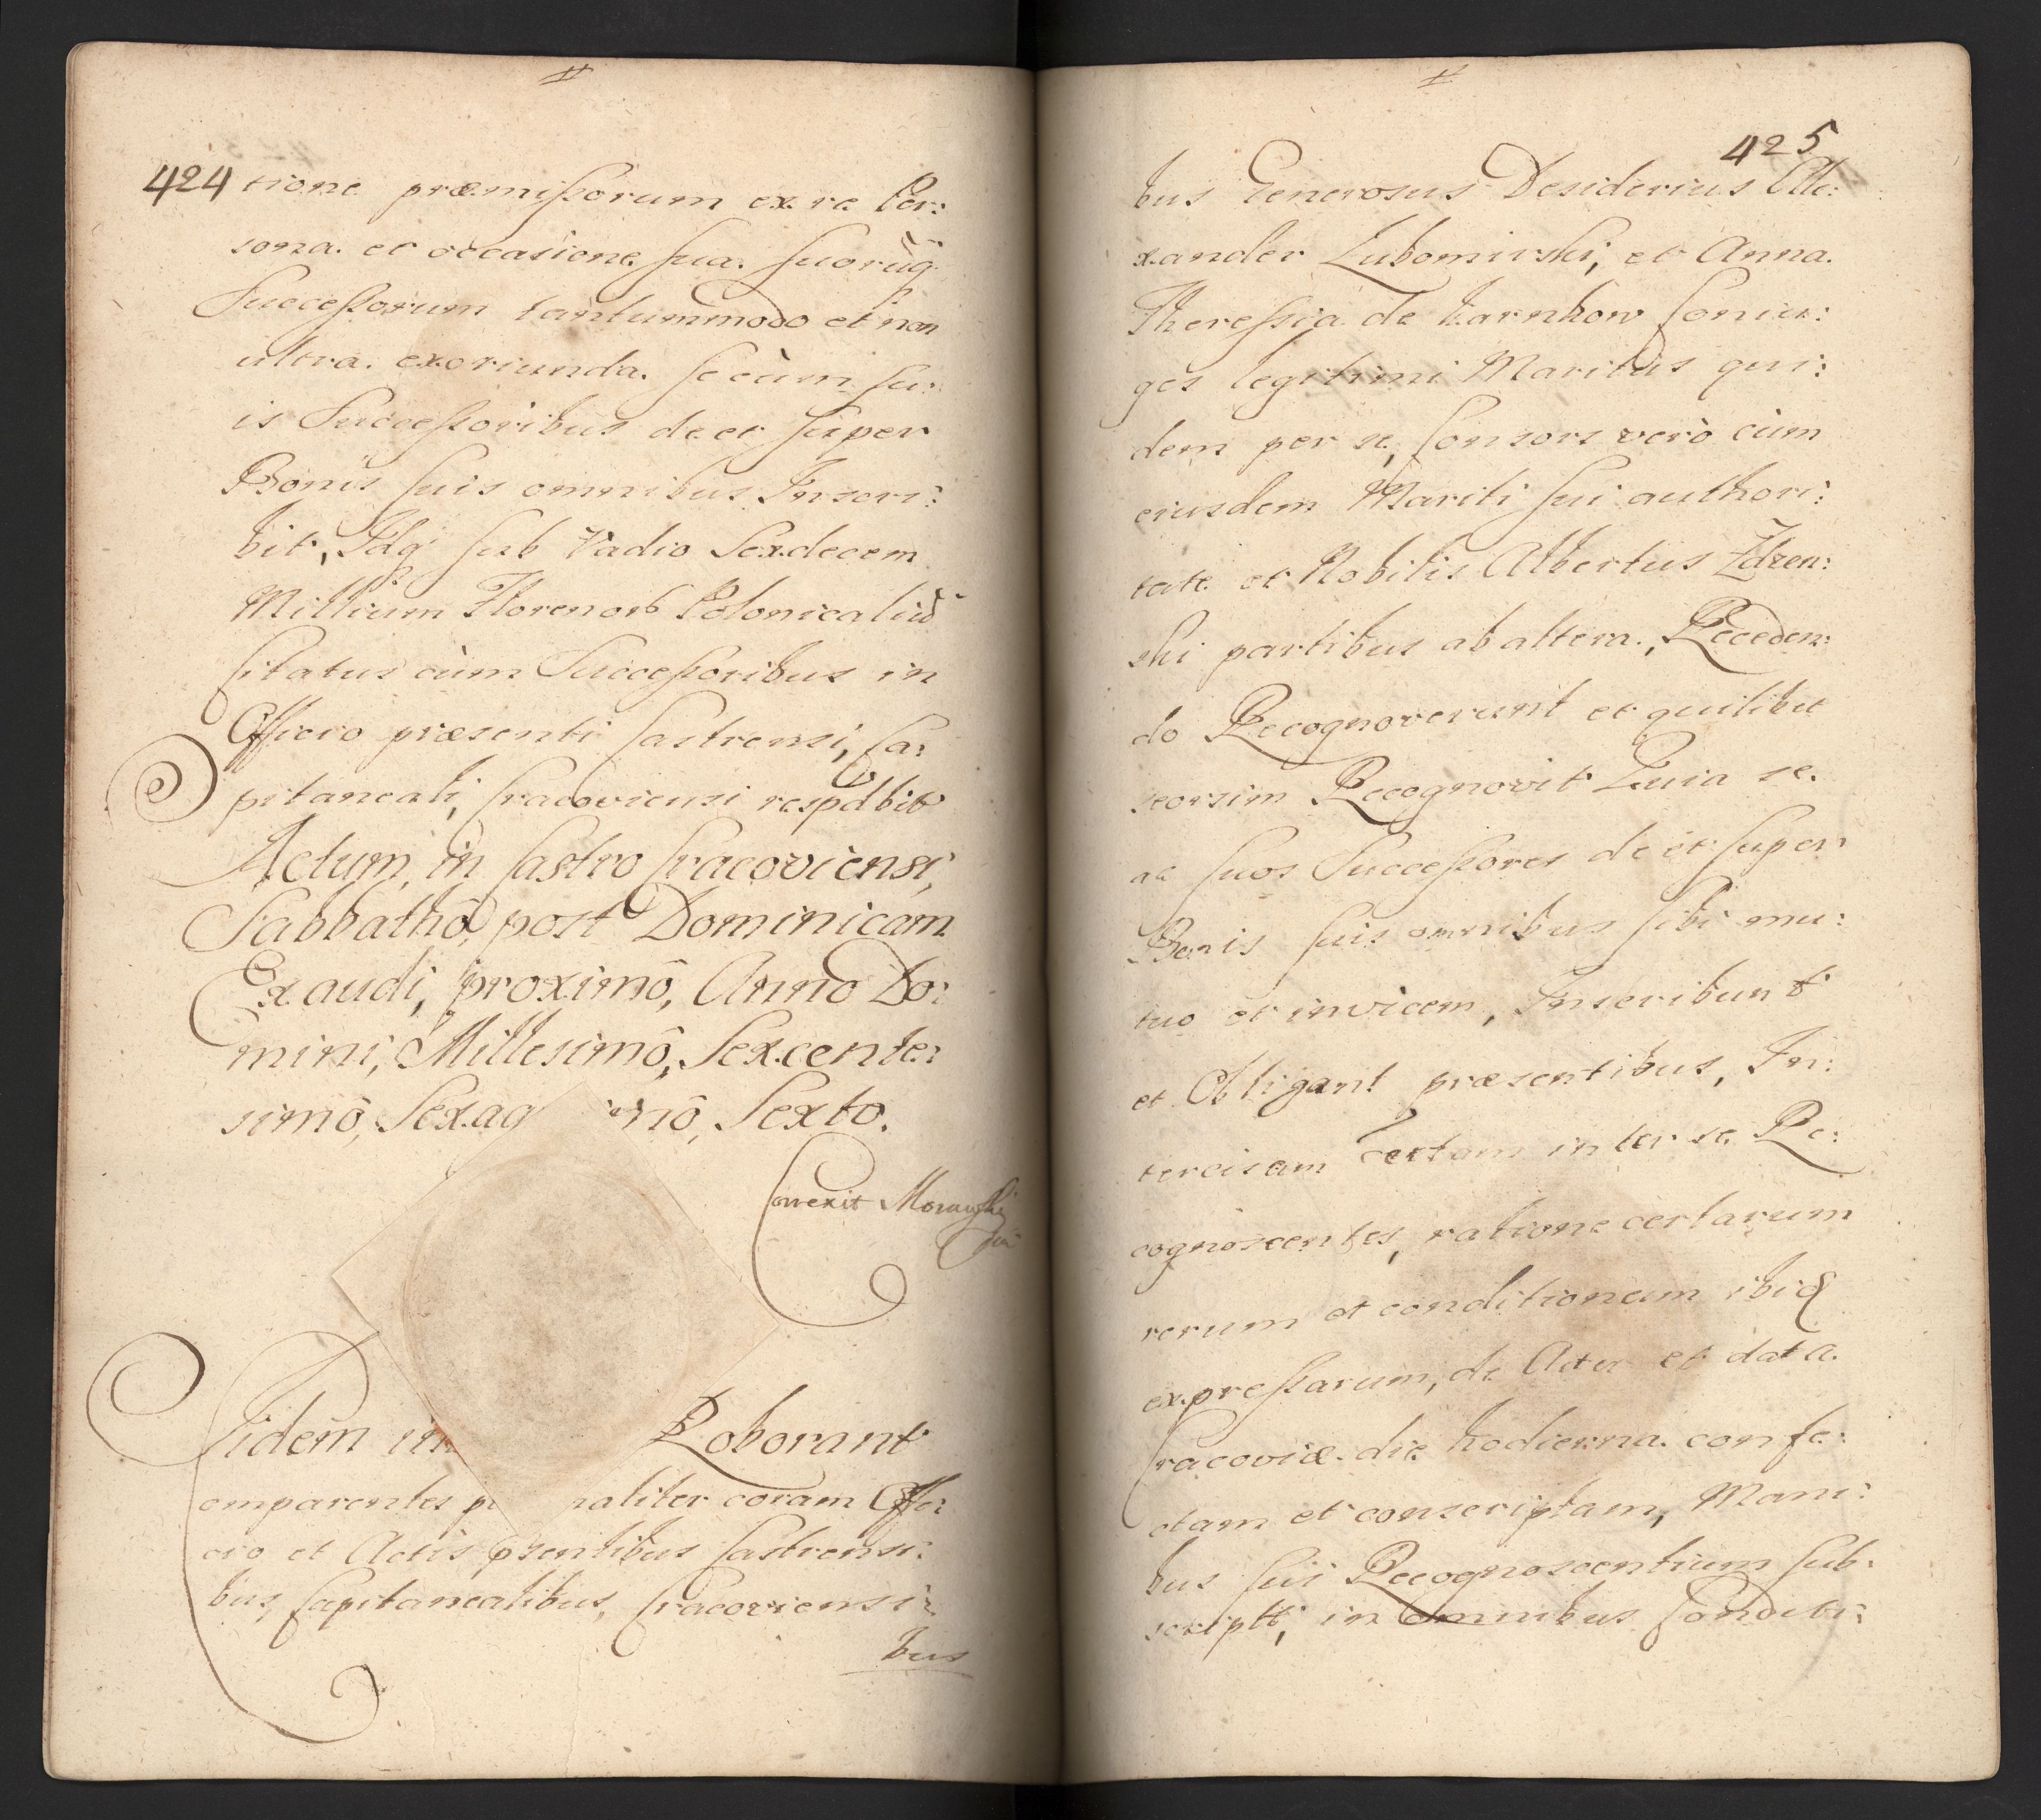 424
tione præmissorum ex re Per:
sona et occasione sua suorūq
Successorum tantummodo et non
ultra exoriunda se cùm su:
is Successoribus de et super
Bonis suis omnibus Inscri:
bit, Idq sub Vadio Sexdecem
Millium Florenor Polonicaliū
Citatus cùm Successoribus in
Officio præsenti Castrensi, Ca:
pitaneali, Cracoviensi respdbit
Actum in Castro Cracoviensi,
Sabbathô, post Dominicam
Exaudi, proximô, Anno Do:
mini, Millesimô, Sexcente:
simô, Sexag mô, Sexto.
Correxit Morawski
Iidem in Roborant
omparentes p naliter coram Offi:
cio et Actis psentibus Castrensi:
bus, Capitanealibus, Cracoviensi:
bus
425
bus Generosus Desiderius Ale:
xander Lubomirski, et Anna
Theressia de Tarnhow Coniu:
ges legitimi Maritus qui:
dem per se, Consors verò cùm
eiusdem Mariti sui authori:
tate et Nobilis Albertus Zdzen:
ski partibus ab altera, Receden:
do Recognoverunt et quilibet
seorsim Recognovit Quia se
ac suos Successores de et super
Bonis suis omnibus sibi mu:
tuo et invicem, Inscribunt
et Obligant præsentibus, In:
tercisam certam inter se Re:
cognoscentes, ratione certarum
rerum et conditionum ibiq
expressarum, de Actu et data
Cracoviæ die hodierna confe:
ctam et conscriptam, Mani:
bus sui Recognoscentium sub:
scriptt, in Omnibus Conditi: